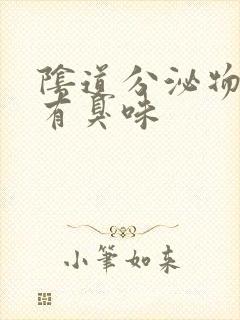 陰道分泌物
有臭味
小筆如來